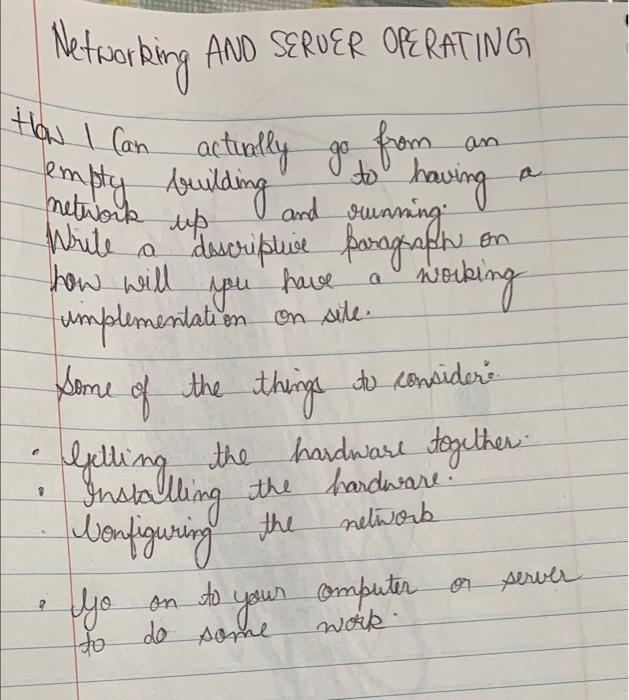 Networking AND SERVER OPERATING
How I Can actually go from an
empty building to having a
network up and running.
Write a descriptive paragraph on
how will you have a working
implementation on site.
Some of the things to consider:
• Getting the hardware together.
• Installing the hardware.
• Configuring the network
• Go on to your computer or server
to do some work.